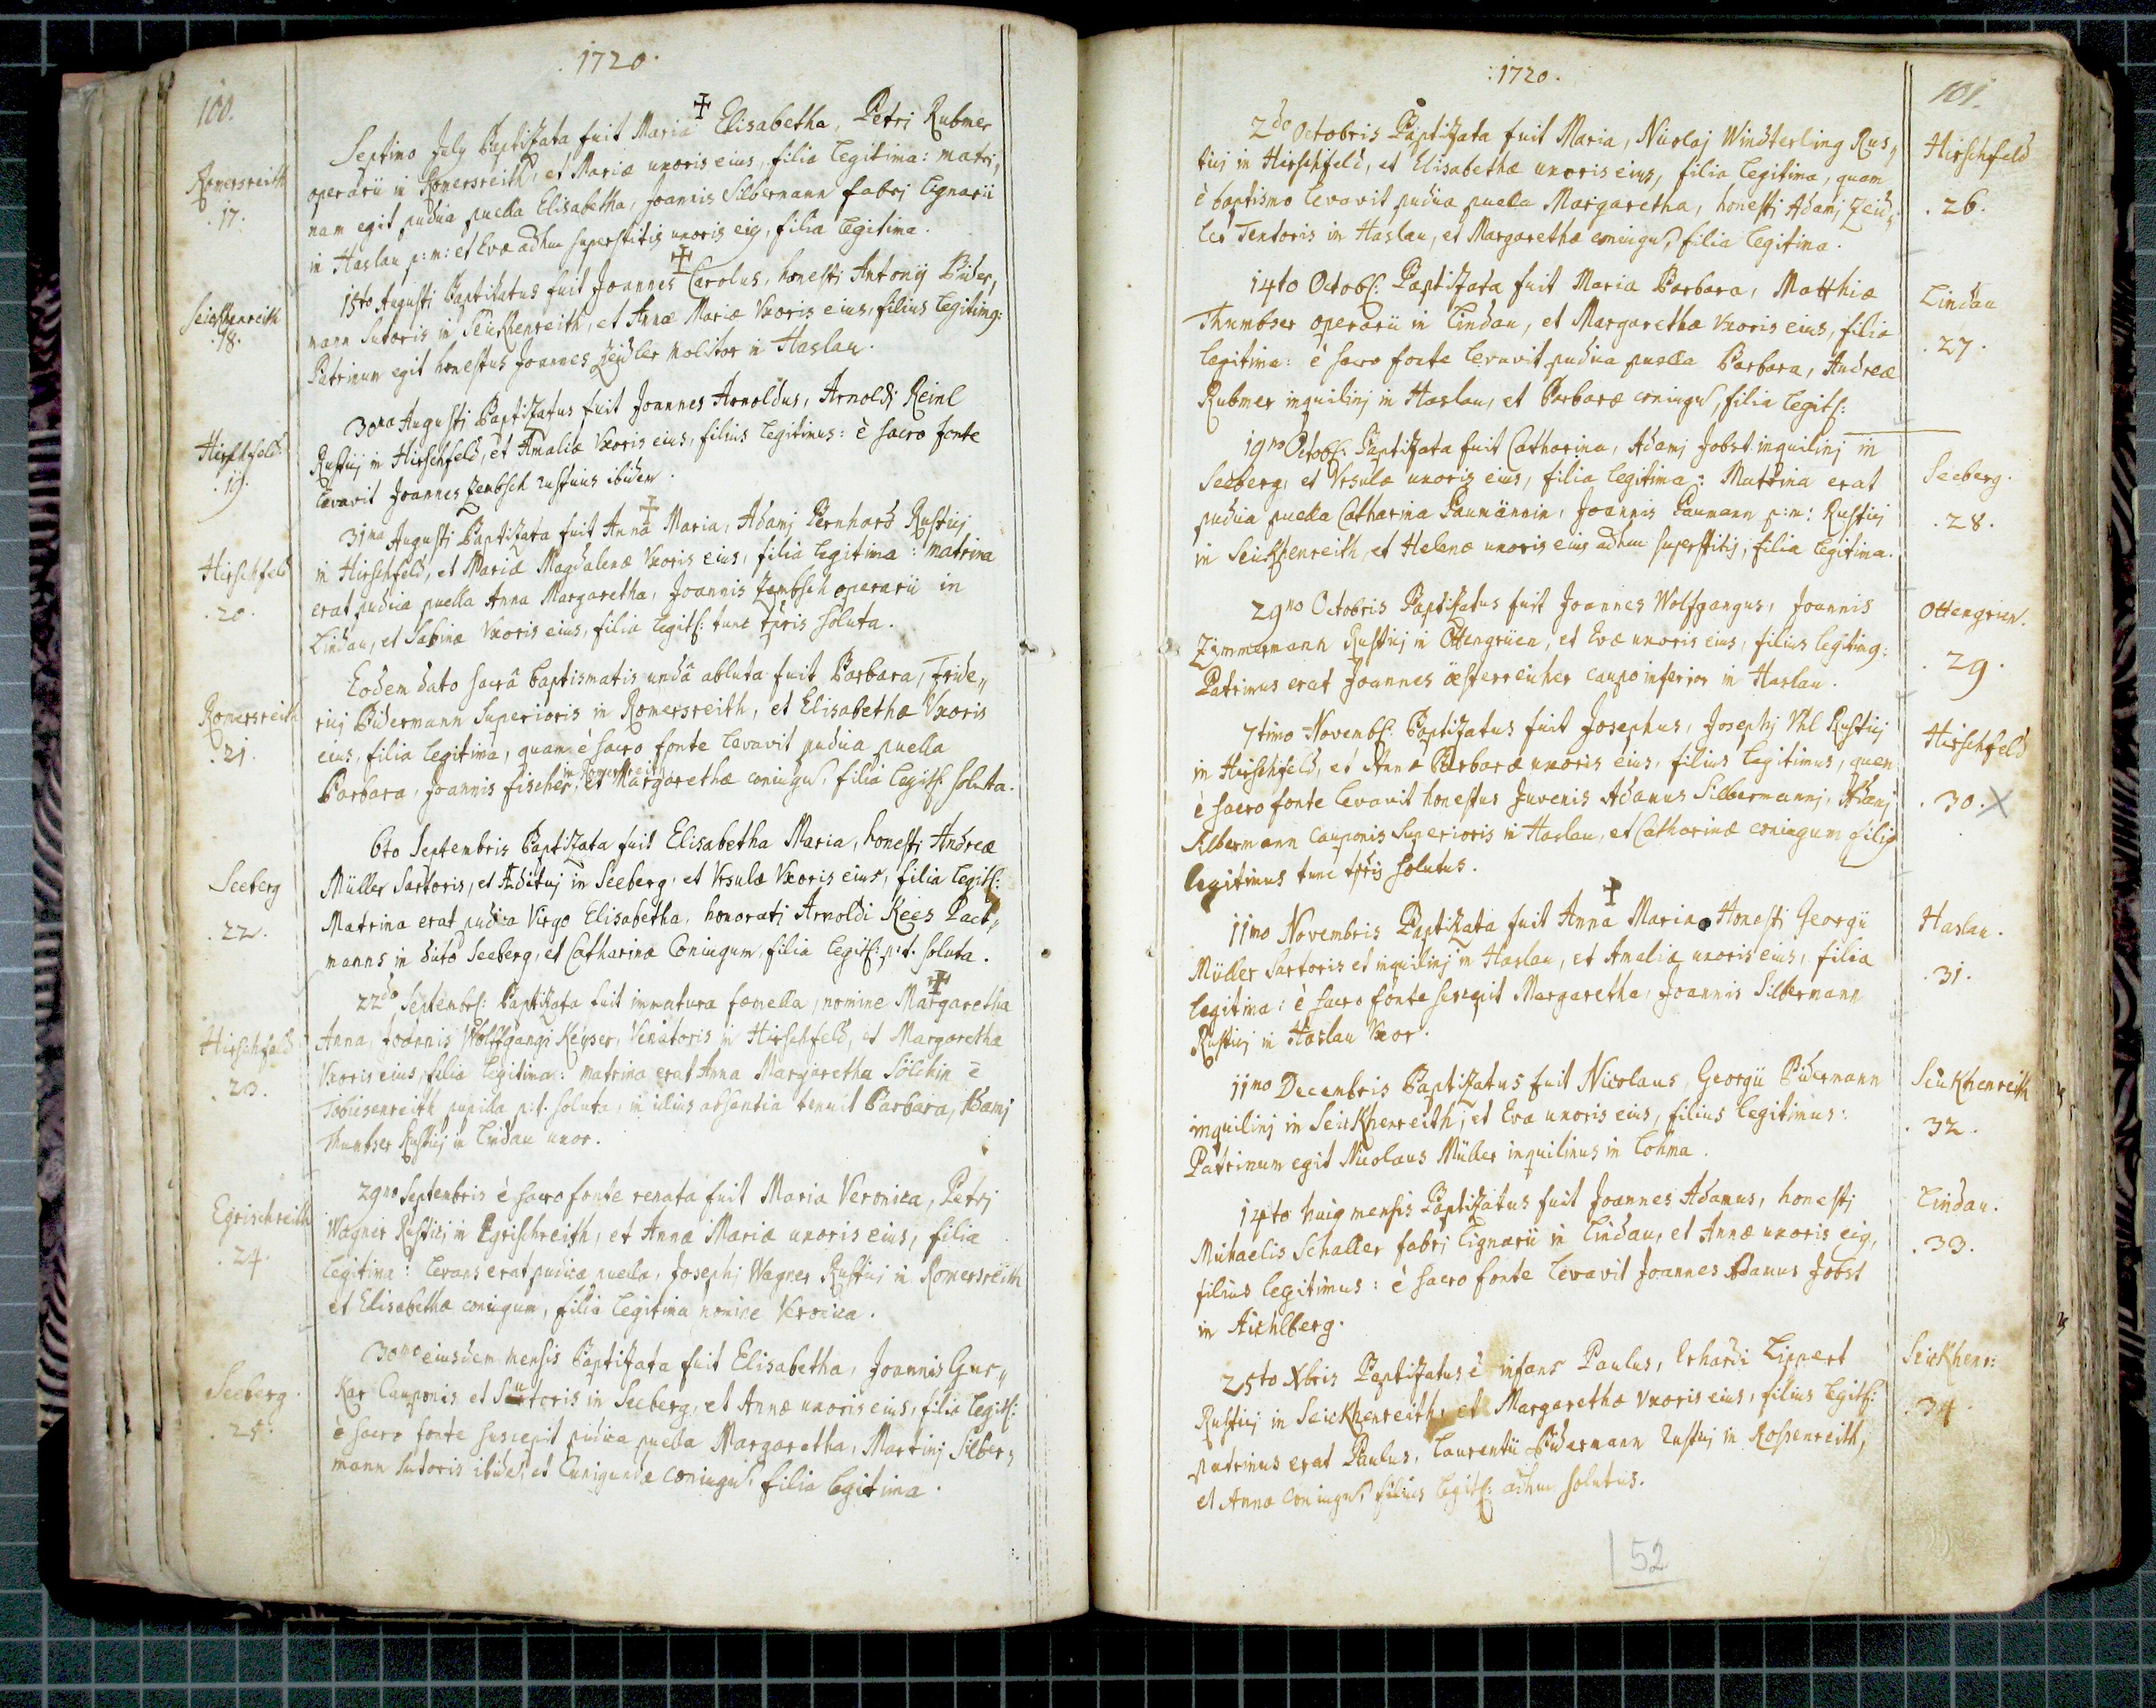 .1720.
100.
Septimo July Baptizata fuit Maria Elisabetha, Petri Rubmer
Romersreith
.17.
operarii in Romersreith, et Mariæ uxoris eius, filia legitima: matri,
nam egit pudica puella Elisabetha, Joannis Silbermann fabrj lignarii
in Haslau p:m: et Evæ adhuc superstitis uxoris eig, filia legitima.
15to Augusti Baptizatus fuit Joannes Carolus, honesti Antonij Bider,
Seickhenreith
.18.
mann Sutoris in Seickhenreith, et Annæ Mariæ Uxoris eius, filius legitimg:
Patrinum egit honestus Joannes Zeidler molitor in Haslau.
30ma Augusti Baptizatus fuit Joannes Arnoldus, Arnoldj Reinl
Hirschfeld
.19.
Rusticj in Hirschfeld, et Amaliæ Vxoris eius, filius legitimus: è sacro fonte
levavit Joannes Zembsch rusticus ibidem.
31ma Augusti Baptizata fuit Anna Maria, Adamj Pernhard Rusticj
Hirschfeld
.20.
in Hirschfeld, et Mariæ Magdalenæ Vxoris eius, filia legitima: matrina
erat pudica puella Anna Margaretha, Joannis Zembsch operarii in
Lindau, et Sabinæ Vxoris eius, filia legits: tunc tpris soluta.
Eodem dato sacrâ baptismatis undâ abluta fuit Barbara, Fride,,
Romersreith
.21.
ricj Bidermann Superioris in Romersreith, et Elisabethæ Vxoris
eius, filia legitima, quam è sacro fonte levavit pudica puella
in Romersreith
Barbara, Joannis fischer, et Margarethæ coniugū, filia legits: soluta.
6to Septembris Baptizata fuit Elisabetha Maria, honesti Andreæ
Seeberg
.22.
Müller Sartoris, et Ædituj in Seeberg, et Vrsulæ Vxoris eius, filia legits:
Matrina erat pudica Virgo Elisabetha, honorati Arnoldi Kees Pact,,
manns in dicto Seeberg, et Catharinæ Coniugum, filia legits: p:t. soluta.
22do Septembrs: Baptizata fuit immatura fœmella, nomine Margaretha
Hirschfeld
.23.
Anna, Joannis Wolffgangi Keyser, Venatoris in Hirschfeld, et Margaretha
Vxoris eius, filia legitima: matrina erat Anna Margaretha Sölchin è
Tobiesenreith pupilla p:t. soluta, in illius absentia tenuit Barbara, Adamj
Thumbser Rusticj in Lindau uxor.
29no Septembris è sacro fonte renata fuit Maria Veronica, Petrj
Egrischreith
.24.
Wagner Rusticj in Egrischreith, et Annæ Mariæ uxoris eius, filia
legitima: levans erat pudica puella, Josephj Wagner Rusticj in Romersreith
et Elisabethæ coniugum, filia legitima nomine Veronica.
30mo eiusdem mensis Baptizata fuit Elisabetha, Joannis Gus,,
Seeberg.
.25.
Kar Cauponis et Sutoris in Seeberg, et Annæ uxoris eius, filia legits:
è sacro fonte suscepit pudica puella Margaretha, Martinj Silber,
mann Sutoris ibidē, et Cunigundæ coniugū, filia legitima.
.1720.
101.
2do Octobris Baptizata fuit Maria, Nicolaj Windterling Rus,,
Hirschfeld
.26.
ticj in Hirschfeld, et Elisabethæ uxoris eius, filia legitima, quam
è baptismo levavit pudica puella Margaretha, honesti Adamj Zeid,,
ler Textoris in Haslau, et Margarethæ coniugū, filia legitima.
14to Octobs: Baptizata fuit Maria Barbara, Matthiæ
Lindau
.27.
Thumbser operarii in Lindau, et Margarethæ Vxoris eius, filia
legitima: è sacro fonte levavit pudica puella Barbara, Andreæ
Rubmer inquilinj in Haslau, et Barbaræ coniugū, filia legits:
19no Octobs: Baptizata fuit Catharina, Adamj Jobst inquilinj in
Seeberg.
.28.
Seeberg, et Vrsulæ uxoris eius, filia legitima: Matrina erat
pudica puella Catharina Paumännin, Joannis Paumann p:m: Rusticj
in Seickhenreith, et Helenæ uxoris eius adhuc superstitis, filia legitima.
29no Octobris Baptizatus fuit Joannes Wolfgangus, Joannis
Ottengrien.
.29.
Zimmermann Rusticj in Ottengrüen, et Evæ uxoris eius, filius legitimg:
Patrinus erat Joannes österreicher caupo inferior in Haslau.
7timo Novembs: Baptizatus fuit Josephus, Josephj Vhl Rusticj
Hirschfeld
.30. X
in Hirschfeld, et Annæ Barbaræ uxoris eius, filius legitimus, quem
è sacro fonte levavit honestus Juvenis Adamus Silbermannj, Adamj
Silbermann Cauponis Superioris in Haslau, et Catharinæ coniugum filig
legitimus tunc tpris solutus.
11mo Novembris Baptizata fuit Anna Maria Honesti Georgii
Haslau.
.31.
Müller Sartoris et inquilinj in Haslau, et Amaliæ uxoris eius, filia
legitima: è sacro fonte suscepit Margaretha, Joannis Silbermann
Rusticj in Haslau Vxor.
11mo Decembris Baptizatus fuit Nicolaus, Georgii Bidermann
Seickhenreith
.32.
inquilinj in Seickhenreith, et Evæ uxoris eius, filius legitimus:
Patrinum egit Nicolaus Müller inquilinus in Lohma.
14to huig mensis Baptizatus fuit Joannes Adamus, honesti
Lindau.
.33.
Michaelis Schaller fabrj lignarii in Lindau, et Annæ uxoris eig,
filius legitimus: è sacro fonte levavit Joannes Adamus Jobst
in Aichlberg.
25to Xbris Baptizatus è infans Paulus, Erhardi Lippert
Seickhenr:
34
Rusticj in Seickhenreith, et Margarethæ Vxoris eius, filius legits:
patrinus erat Paulus, Laurentii Bidermann rusticj in Rossenreith,
et Annæ coniugū filius legits: adhuc solutus.
52